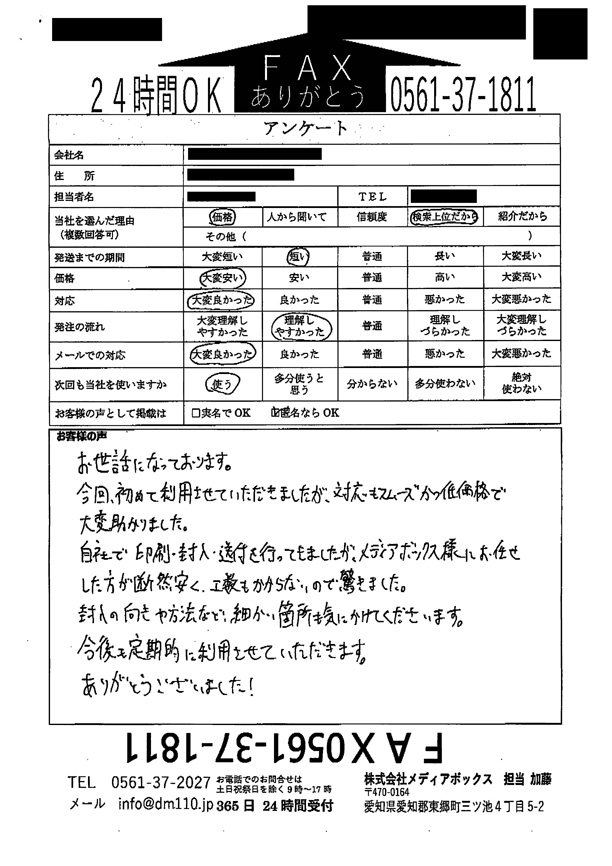 FAX
ありがとう
24時間OK
0561-37-1811
アンケート
会社名
住 所
担当者名 TEL
当社を選んだ理由 (複数回答可) 価格 人から聞いて 信頼度 検索上位だから 紹介だから
その他 ( )
発送までの期間 大変短い 短い 普通 長い 大変長い
価格 大変安い 安い 普通 高い 大変高い
対応 大変良かった 良かった 普通 悪かった 大変悪かった
発注の流れ 大変理解しやすかった 理解しやすかった 普通 理解しづらかった 大変理解しづらかった
メールでの対応 大変良かった 良かった 普通 悪かった 大変悪かった
次回も当社を使いますか 使う 多分使うと思う 分からない 多分使わない 絶対使わない
お客様の声として掲載は □実名でOK ☑匿名ならOK
お客様の声
お世話になっております。
今回、初めて利用させていただきましたが、対応もスムーズかつ低価格で
大変助かりました。
自社で印刷・封入・送付を行ってもましたが、メディアボックス様にお任せ
した方が断然安く、工数もかからないので驚きました。
封入の向きや方法など、細かい箇所も気にかけてくださいます。
今後も定期的に利用させていただきます。
ありがとうございました!
FAX0561-37-1811
TEL 0561-37-2027 お電話でのお問合せは
土日祝祭日を除く9時~17時
メール info@dm110.jp 365日 24時間受付
株式会社メディアボックス 担当 加藤
〒470-0164
愛知県愛知郡東郷町三ツ池4丁目5-2